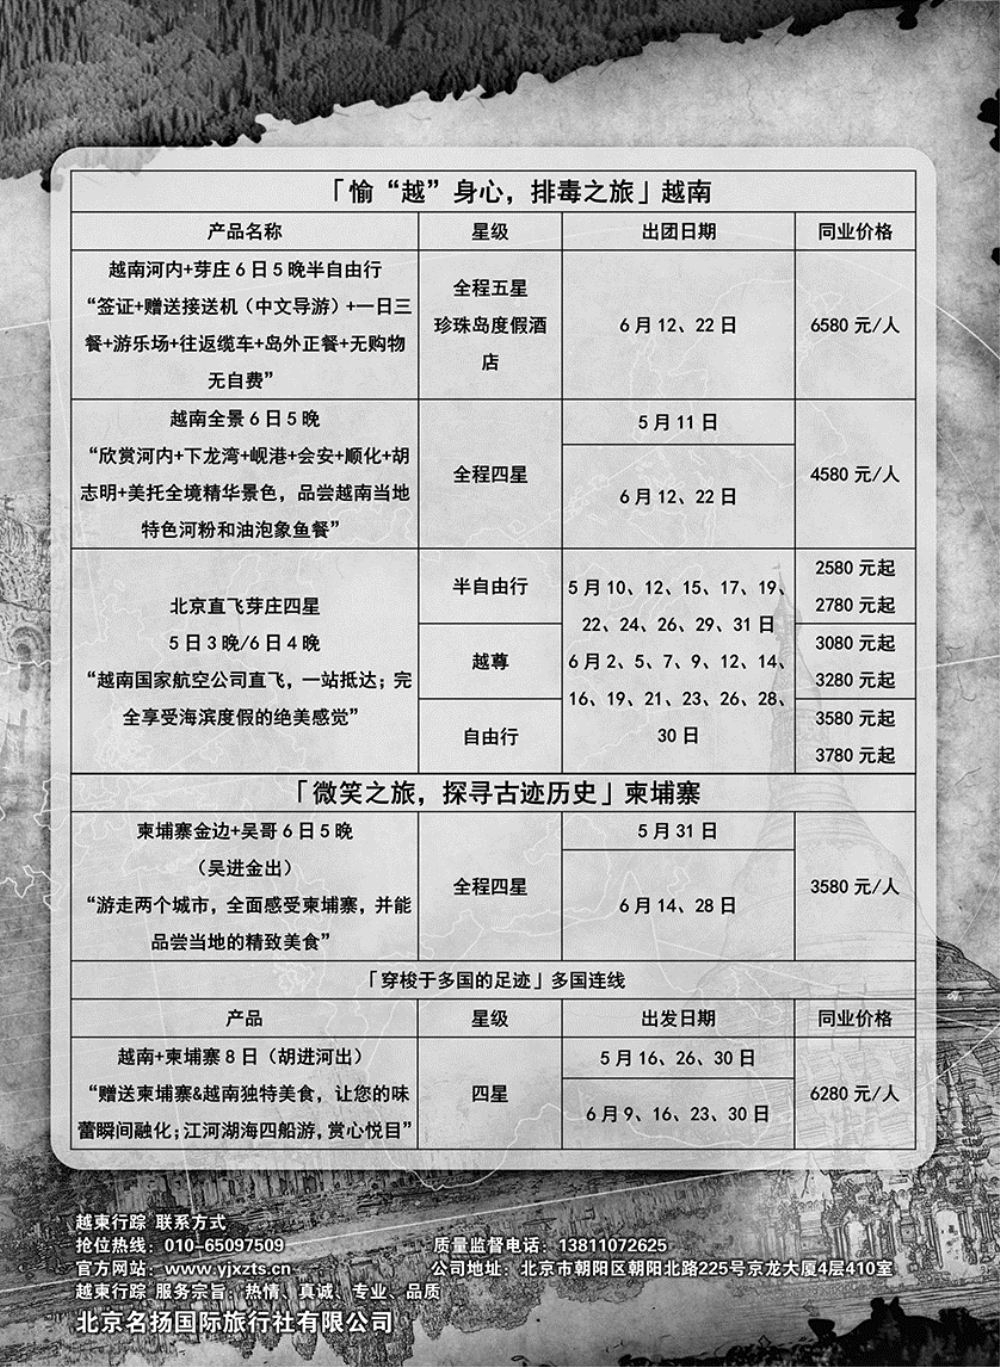 「愉“越”身心，排毒之旅」越南
产品名称 星级 出团日期 同业价格
越南河内+芽庄6日5晚半自由行
“签证+赠送接送机（中文导游）+一日三
餐+游乐场+往返缆车+岛外正餐+无购物
无自费”
全程五星
珍珠岛度假酒
店
6月12、22日
6580元/人
越南全景6日5晚
“欣赏河内+下龙湾+岘港+会安+顺化+胡
志明+美托全境精华景色，品尝越南当地
特色河粉和油泡象鱼餐”
全程四星
5月11日
6月12、22日
4580元/人
北京直飞芽庄四星
5日3晚/6日4晚
“越南国家航空公司直飞，一站抵达；完
全享受海滨度假的绝美感觉”
半自由行
越尊
自由行
5月10、12、15、17、19、
22、24、26、29、31日
6月2、5、7、9、12、14、
16、19、21、23、26、28、
30日
2580元起
2780元起
3080元起
3280元起
3580元起
3780元起
「微笑之旅，探寻古迹历史」柬埔寨
柬埔寨金边+吴哥6日5晚
（吴进金出）
“游走两个城市，全面感受柬埔寨，并能
品尝当地的精致美食”
全程四星
5月31日
6月14、28日
3580元/人
「穿梭于多国的足迹」多国连线
产品 星级 出发日期 同业价格
越南+柬埔寨8日（胡进河出）
“赠送柬埔寨&越南独特美食，让您的味
蕾瞬间融化；江河湖海四船游，赏心悦目”
四星
5月16、26、30日
6月9、16、23、30日
6280元/人
越柬行踪 联系方式
抢位热线：010-65097509 质量监督电话：13811072625
官方网站：www.yjxzts.cn 公司地址：北京市朝阳区朝阳北路225号京龙大厦4层410室
越柬行踪 服务宗旨：热情、真诚、专业、品质
北京名扬国际旅行社有限公司